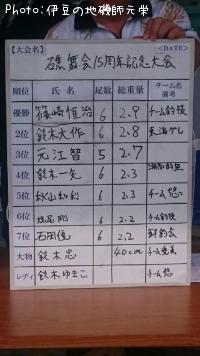 Photo:伊豆の地磯師元学
【大会名】 <DATE>
礁翼会15周年記念大会
順位 氏名 尾数 総重量 チーム名 備考
優勝 篠崎恒治 6 2.9 チーム釣技
2位 鈴木大作 6 2.8
3位 元江智 5 2.7
4位 鈴木一矢 6 2.3
5位 秋山和利 6 2.3 チーム悠
6位 剛 6 2.2 チーム釣技
7位 石田俊 6 2.2
大物 鈴木忠 40cm チーム
レディ 鈴木ゆきこ チーム悠